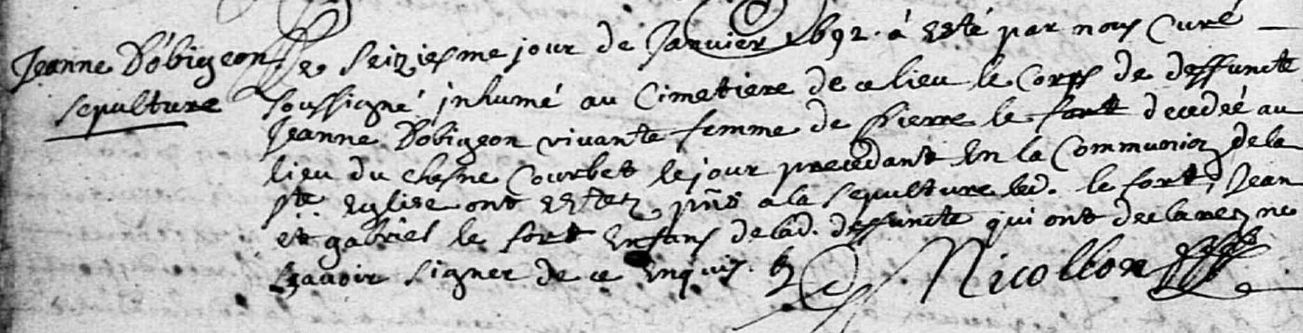 Jeanne Dobigeon
sepulture
Le seiziesme jour de Janvier 1692 . à esté par nous Curé
soussigné inhumé au Cimetiere de ce lieu le Corps de deffuncte
Jeanne Dobigeon vivante femme de Pierre le fort decedéé au
lieu du chesne Courbet le jour precedant En la Communion de la
ste Eglise ont estez pñs a la sepulture led. le fort, Jean
et gabriel le fort Enfans de lad. deffuncte qui ont declarez ne
Sçavoir signer de ce Enquis.
Nicollon